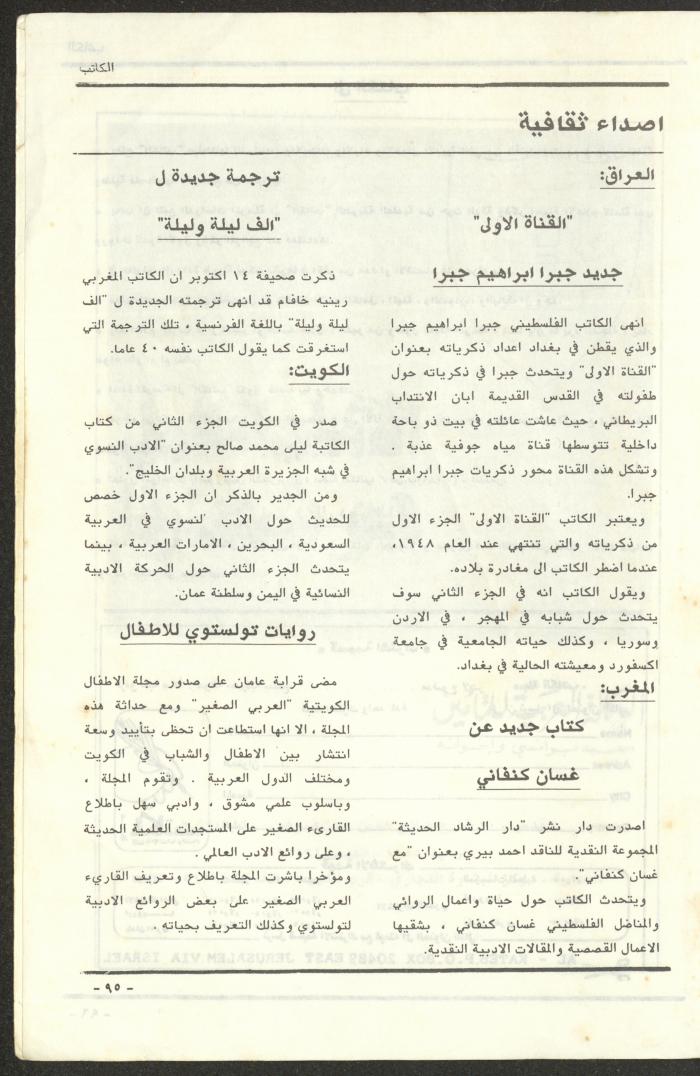 الكاتب
اصداء ثقافية
العراق:
"القناة الاولى"
جديد جبرا ابراهيم جبرا
انهى الكاتب الفلسطيني جبرا ابراهيم جبرا
والذي يقطن في بغداد اعداد ذكرياته بعنوان
"القناة الاولى" ويتحدث جبرا في ذكرياته حول
طفولته في القدس القديمة ابان الانتداب
البريطاني ، حيث عاشت عائلته في بيت ذو باحة
داخلية تتوسطها قناة مياه جوفية عذبة .
وتشكل هذه القناة محور ذكريات جبرا ابراهيم
جبرا.
ويعتبر الكاتب "القناة الاولى" الجزء الاول
من ذكرياته والتي تنتهي عند العام ١٩٤٨،
عندما اضطر الكاتب الى مغادرة بلاده.
ويقول الكاتب انه في الجزء الثاني سوف
يتحدث حول شبابه في المهجر ، في الاردن
وسوريا ، وكذلك حياته الجامعية في جامعة
اكسفورد ومعيشته الحالية في بغداد.
المغرب:
كتاب جديد عن
غسان كنفاني
اصدرت دار نشر "دار الرشاد الحديثة"
المجموعة النقدية للناقد احمد بيري بعنوان "مع
غسان كنفاني".
ويتحدث الكاتب حول حياة واعمال الروائي
والمناضل الفلسطيني غسان كنفاني ، بشقيها
الاعمال القصصية والمقالات الادبية النقدية.
ترجمة جديدة ل
"الف ليلة وليلة"
ذكرت صحيفة ١٤ اكتوبر ان الكاتب المغربي
رينيه خافام قد انهى ترجمته الجديدة ل "الف
ليلة وليلة" باللغة الفرنسية ، تلك الترجمة التي
استغرقت كما يقول الكاتب نفسه ٤٠ عاما.
الكويت:
صدر في الكويت الجزء الثاني من كتاب
الكاتبة ليلى محمد صالح بعنوان "الادب النسوي
في شبه الجزيرة العربية وبلدان الخليج".
ومن الجدير بالذكر ان الجزء الاول خصص
للحديث حول الادب النسوي في العربية
السعودية ، البحرين ، الامارات العربية ، بينما
يتحدث الجزء الثاني حول الحركة الادبية
النسائية في اليمن وسلطنة عمان.
روايات تولستوي للاطفال
مضى قرابة عامان على صدور مجلة الاطفال
الكويتية "العربي الصغير" ومع حداثة هذه
المجلة ، الا انها استطاعت ان تحظى بتأييد وسعة
انتشار بين الاطفال والشباب في الكويت
ومختلف الدول العربية . وتقوم المجلة ،
وباسلوب علمي مشوق ، وادبي سهل باطلاع
القارىء الصغير على المستجدات العلمية الحديثة
، وعلى روائع الادب العالمي .
ومؤخرا باشرت المجلة باطلاع وتعريف القاريء
العربي الصغير على بعض الروائع الادبية
لتولستوي وكذلك التعريف بحياته .
- ٩٥ -